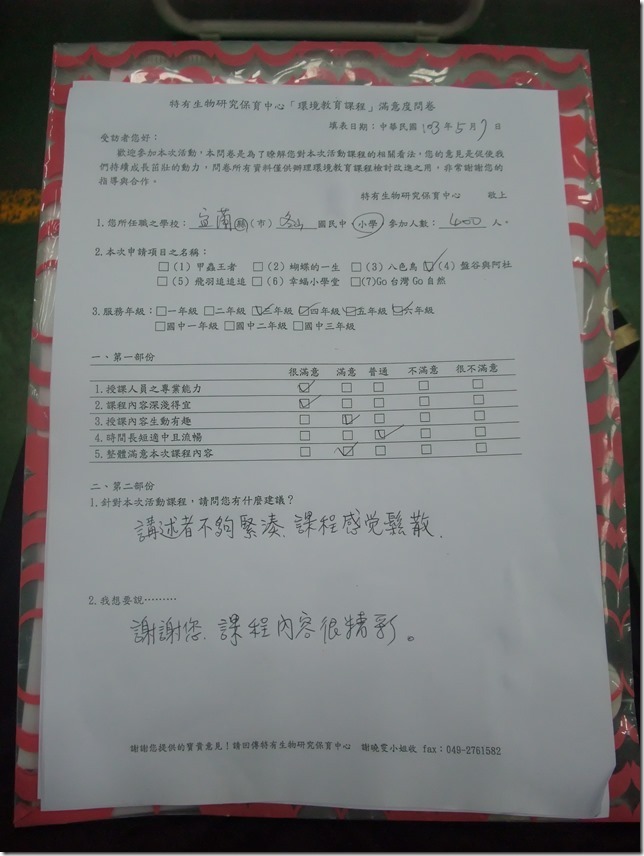 特有生物研究保育中心「環境教育課程」滿意度問卷
填表日期：中華民國 103 年 5 月 7 日
受訪者您好：
歡迎參加本次活動，本問卷是為了瞭解您對本次活動課程的相關看法，您的意見是促使我
們持續成長茁壯的動力，問卷所有資料僅供辦理環境教育課程檢討改進之用，非常謝謝您的
指導與合作。
特有生物研究保育中心 敬上
1.您所任職之學校：宜蘭 縣（市） 國民中、小學 參加人數：400 人。
2.本次申請項目之名稱：
□(1) 甲蟲王者 □(2) 蝴蝶的一生 □(3) 八色鳥 ☑(4) 盤谷與阿杜
□(5) 飛羽追追追 □(6) 幸蝠小學堂 □(7)Go 台灣 Go 自然
3.服務年級：□一年級 □二年級 ☑三年級 ☑四年級 ☑五年級 ☑六年級
□國中一年級 □國中二年級 □國中三年級
一、第一部份
很滿意 滿意 普通 不滿意 很不滿意
1.授課人員之專業能力 ☑ □ □ □ □
2.課程內容深淺得宜 ☑ □ □ □ □
3.授課內容生動有趣 □ ☑ □ □ □
4.時間長短適中且流暢 □ □ ☑ □ □
5.整體滿意本次課程內容 □ ☑ □ □ □
二、第二部份
1.針對本次活動課程，請問您有什麼建議？
講述者不夠緊湊、課程感覺鬆散.
2.我想要說………
謝謝您、課程內容很精彩。
謝謝您提供的寶貴意見！請回傳特有生物研究保育中心 謝曉雯小姐收 fax：049-2761582